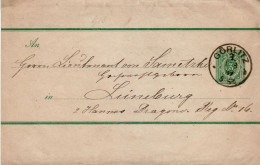 An
Herrn Lieutenant von
Hochwohlgeboren
in
Lüneburg
Hannov. Dragoner Reg. No. 16.
GÖRLITZ